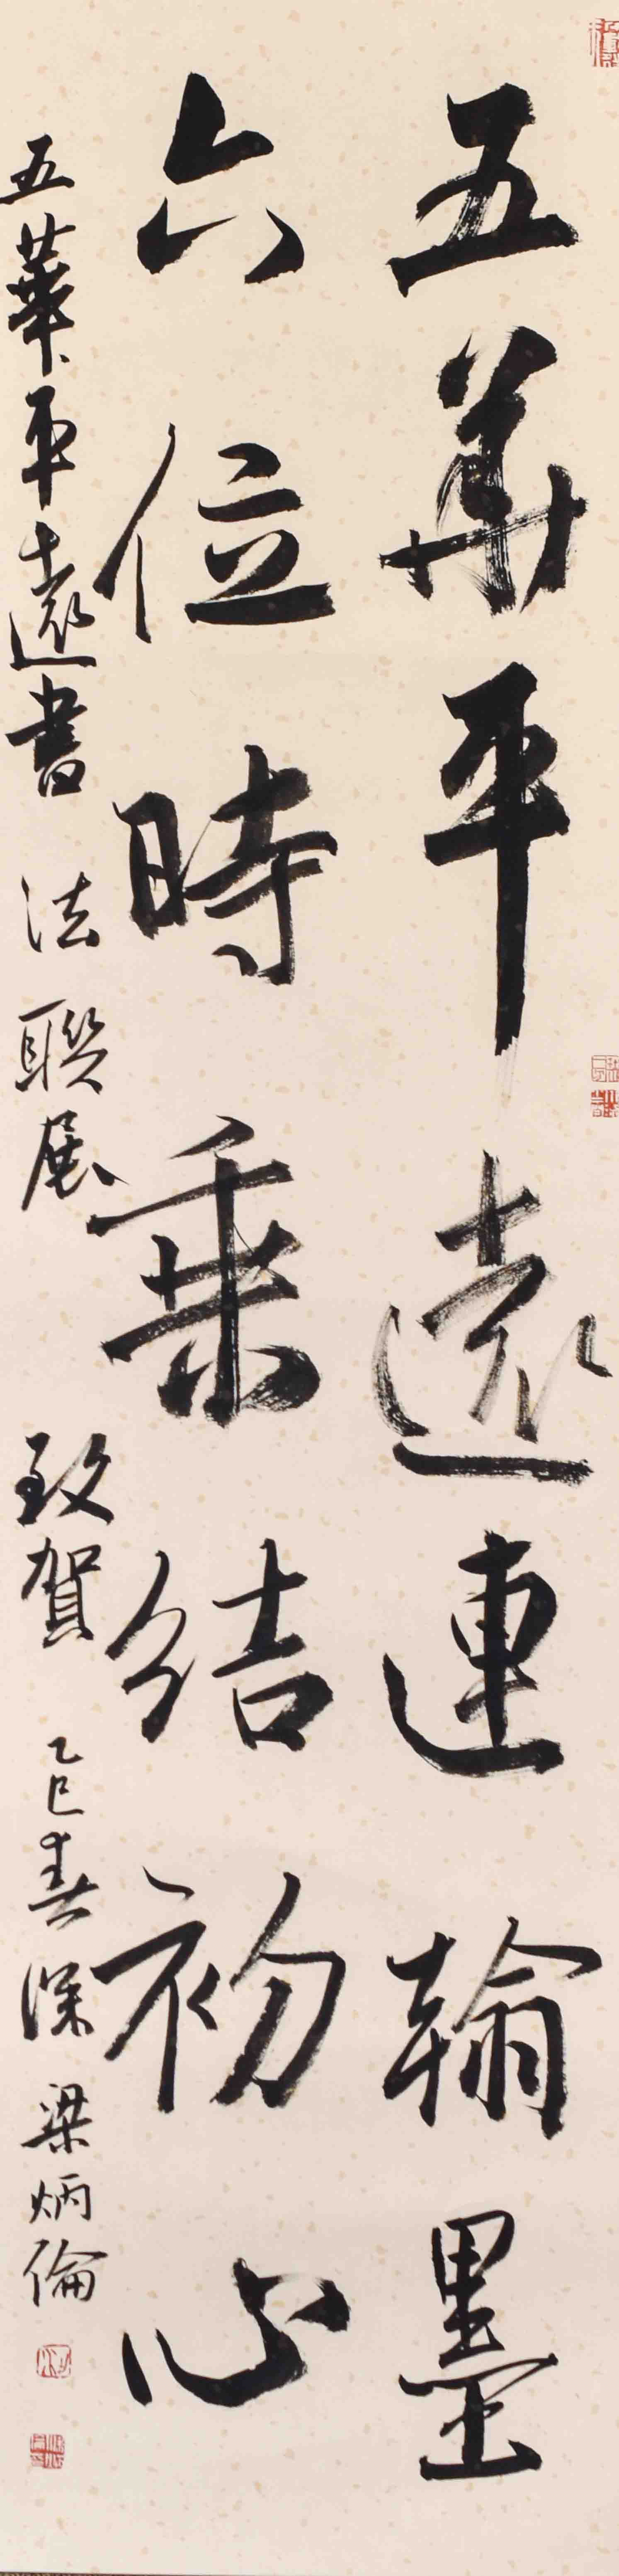 五華平遠連翰墨
六位時乗結初心
五華平遠書法聯展致賀乙巳春深梁炳倫